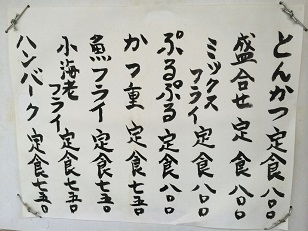 とんかつ定食八〇〇
盛合せ定食八〇〇
ミックスフライ定食八〇〇
ぷるぷる定食八〇〇
かつ重定食七五〇
魚フライ定食七五〇
小海老フライ定食七五〇
ハンバーク定食七五〇